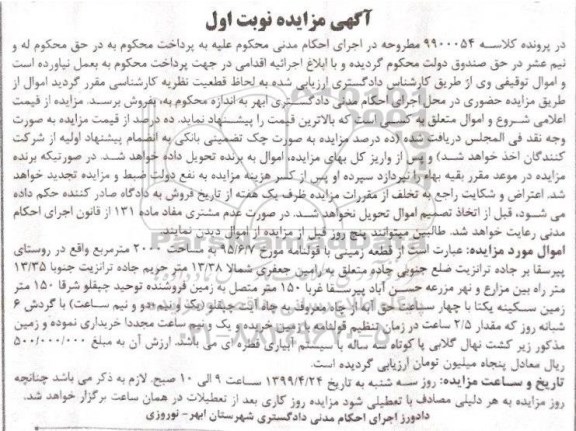 آگهی مزایده نوبت اول
در پرونده کلاسه ۹۹۰۰۰۵۴ مطروحه در اجرای احکام مدنی محکوم علیه به پرداخت محکوم به در حق محکوم له و
نیم عشر در حق صندوق دولت محکوم گردیده و با ابلاغ اجرائیه اقدامی در جهت پرداخت محکوم به بعمل نیاورده است
و اموال توقیفی وی از طریق کارشناس دادگستری ارزیابی شده به لحاظ قطعیت نظریه کارشناسی مقرر گردید اموال از
طریق مزایده حضوری در محل اجرای احکام مدنی دادگستری ابهر به اندازه محکوم به، بفروش برسد. مزایده از قیمت
اعلامی شروع و اموال متعلق به کسی است که بالاترین قیمت را پیشنهاد نماید. ده درصد از قیمت مزایده به صورت
وجه نقد فی المجلس دریافت شده (ده درصد مزایده به صورت چک تضمینی بانکی به انضمام پیشنهاد اولیه از شرکت
کنندگان اخذ خواهد شد) و پس از واریز کل بهای مزایده، اموال به برنده تحویل داده خواهد شد. در صورتیکه برنده
مزایده در موعد مقرر بقیه بهاء را نپردازد سپرده او پس از کسر هزینه مزایده به نفع دولت ضبط و مزایده تجدید خواهد
شد. اعتراض و شکایت راجع به تخلف از مقررات مزایده ظرف یک هفته از تاریخ فروش به دادگاه صادر کننده حکم داده
می شود، قبل از اتخاذ تصمیم اموال تحویل نخواهد شد. در صورت عدم مشتری مفاد ماده ۱۳۱ از قانون اجرای احکام
مدنی رعایت خواهد شد. طالبین میتوانند پنج روز قبل از مزایده از اموال دیدن نمایند.
اموال مورد مزایده: عبارت است از قطعه زمینی با قولنامه مورخ ۹۵/۶/۷ به مساحت ۲۰۰۰ مترمربع واقع در روستای
پیرسقا بر جاده ترانزیت ضلع جنوبی جاده متعلق به رامین جعفری شمالا ۱۳/۳۸ متر حریم جاده ترانزیت جنوبا ۱۳/۳۵
متر راه بین مزارع و نهر مزرعه حسن آباد پیرسقا غربا ۱۵۰ متر متصل به زمین فروشنده توحید جپقلو شرقا ۱۵۰ متر
زمین سکینه یکتا با چهار ساعت حق آبه از چاه معروف به چاه آیت جپقلو (یک و نیم +دو و نیم ساعت) با گردش ۶
شبانه روز که مقدار ۲/۵ ساعت در زمان تنظیم قولنامه بازمین خریده و یک و نیم ساعت مجددا خریداری نموده و زمین
مذکور زیر کشت نهال گلابی پا کوتاه سه ساله با سیستم آبیاری قطره ای می باشد. ارزش آن به مبلغ ۵۰۰/۰۰۰/۰۰۰
ریال معادل پنجاه میلیون تومان ارزیابی گردیده است.
تاریخ و ساعت مزایده: روز سه شنبه به تاریخ ۱۳۹۹/۴/۲۴ ساعت ۹ الی ۱۰ صبح. لازم به ذکر می باشد چنانچه
روز مزایده به هر دلیلی مصادف با تعطیلی شود مزایده روز کاری بعد از تعطیلات در همان ساعت برگزار خواهد شد.
دادورز اجرای احکام مدنی دادگستری شهرستان ابهر- نوروزی